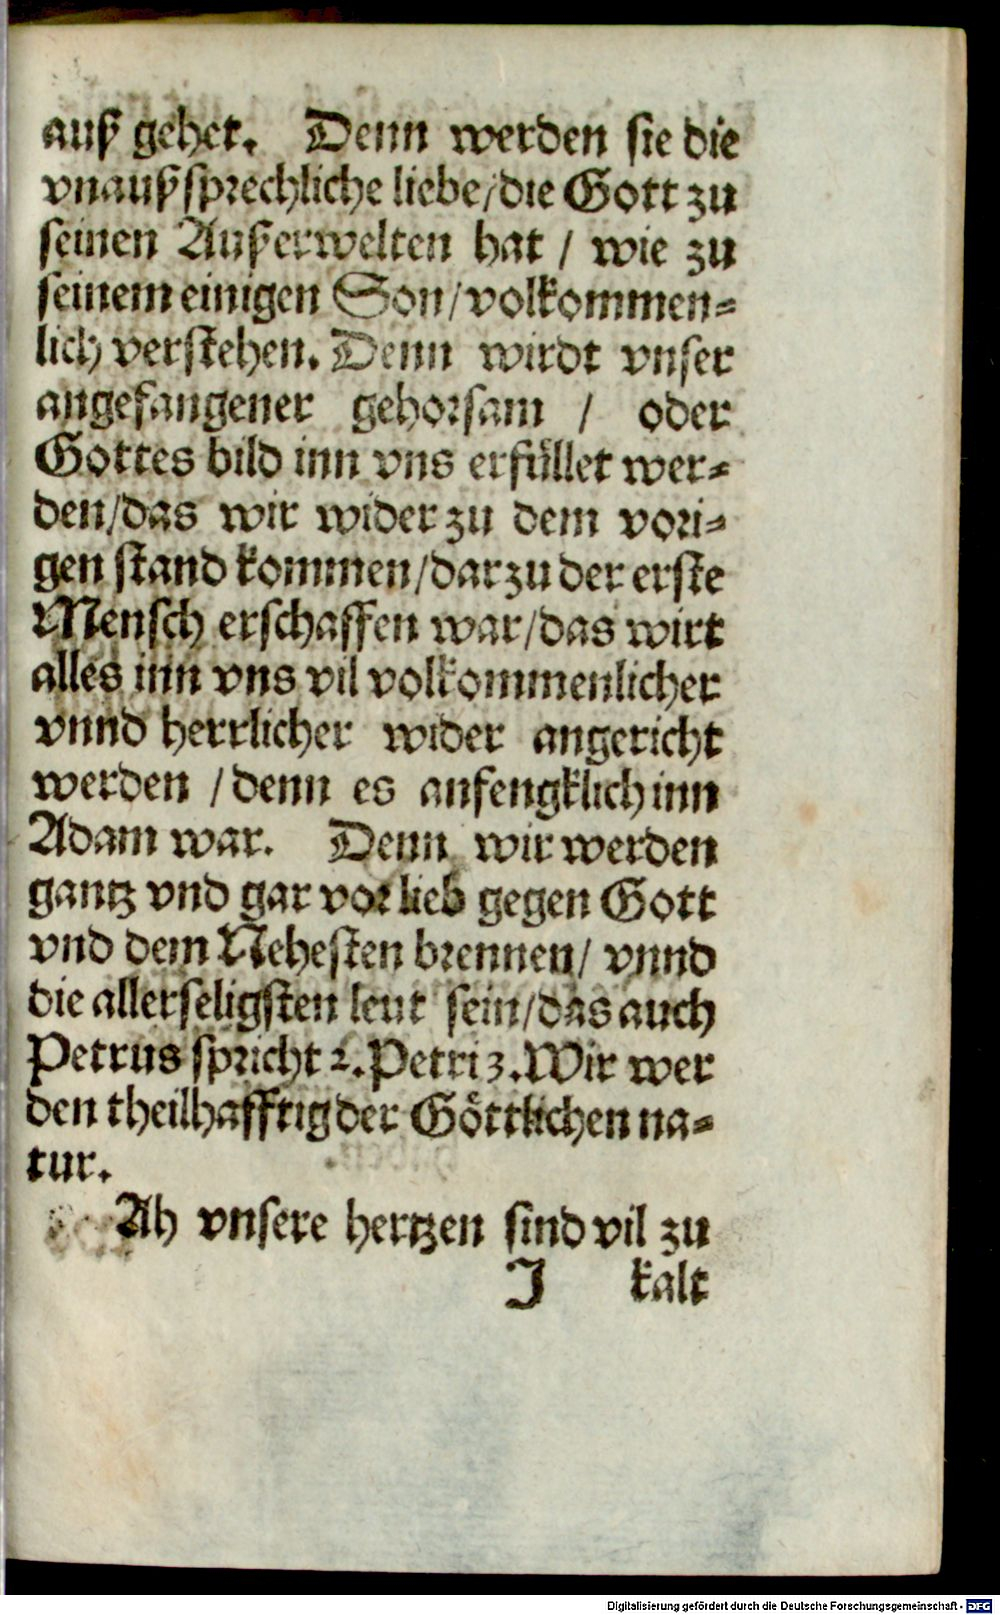 auß gehet. Denn werden sie die
vnaußsprechliche liebe/die Gott zu
seinen Außerwelten hat / wie zu
seinem einigen Son/volkommen-
lich verstehen. Denn wirdt vnser
angefangener gehorsam / oder
Gottes bild inn vns erfüllet wer-
den/das wir wider zu dem vori-
gen stand kommen/darzu der erste
Mensch erschaffen war/das wirt
alles inn vns vil volkommenlicher
vnnd herrlicher wider angericht
werden /denn es anfengklich inn
Adam war. Denn wir werden
gantz vnd gar vor lieb gegen Gott
vnd dem Nehesten brennen/ vnnd
die allerseligsten leut sein/das auch
Petrus spricht 2. Petri 3. Wir wer
den theilhafftig der Göttlichen na-
tur.
Ah vnsere hertzen sind vil zu
J kalt
Digitalisierung gefördert durch die Deutsche Forschungsgemeinschaft - DFG